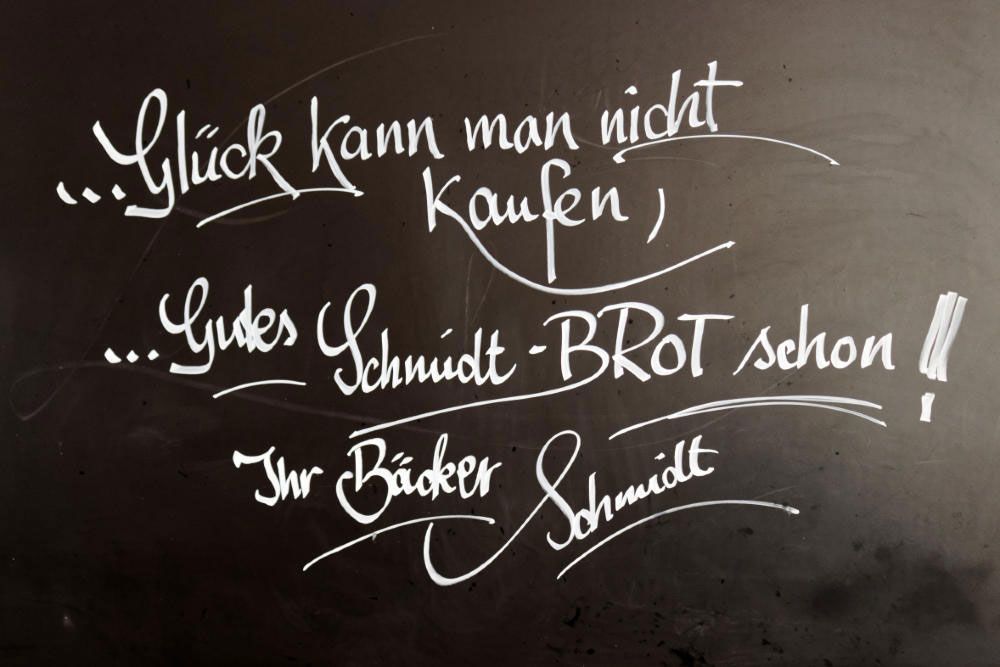 ...Glück kann man nicht
kaufen,
...Gutes Schmidt-BROT schon!
Ihr Bäcker Schmidt